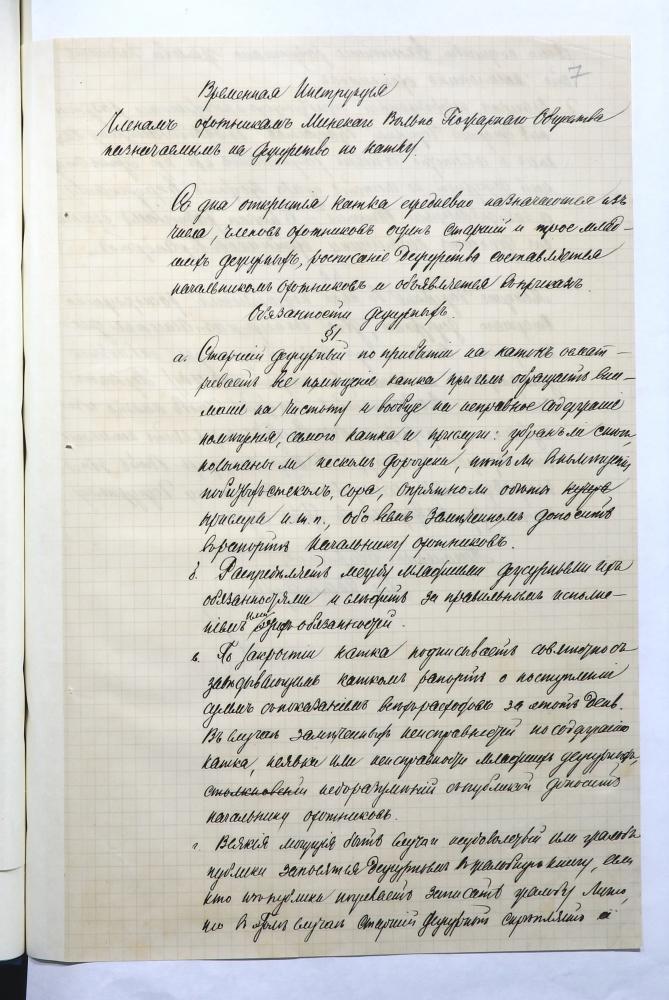 7
Временная Инструкція
Членамъ охотникамъ Минскаго Вольно Пожарнаго Общества
назначаемымъ на дежурство по катку.
Со дня открытія катка ежедневно назначаются изъ
числа членовъ охотниковъ одинъ старшій и трое млад-
шихъ дежурныхъ, росписаніе дежурства составляется
начальникомъ охотниковъ и объявляется въ приказѣ.
Обязанности дежурныхъ.
§1
а. Старшій дежурный по прибытіи на катокъ осмат-
риваетъ все помѣщеніе катка при чемъ обращаетъ вни-
маніе на чистоту и вообще на исправное содержаніе
помѣщенія, самого катка и прислуги: убранъ ли снѣгъ,
посыпаны ли пескомъ дорожки, нѣтъ ли
поблизости стеколъ, сора, опрятно ли одѣты
прислуга и.т.п., обо всемъ замѣченномъ доноситъ
въ рапортѣ Начальнику охотниковъ.
б. Распредѣляетъ между младшими дежурными ихъ
обязанностями и слѣдитъ за правильнымъ исполне-
ніемъ ими обязанностей.
в. По закрытіи катка подписываетъ совмѣстно съ
завѣдывающимъ каткомъ рапортъ о поступленіи
суммъ съ показаніемъ всѣхъ расходовъ за этотъ день.
Въ случаѣ замѣченныхъ неисправностей по содержанію
катка, неявки или неисправности младшихъ дежурныхъ,
столкновеній недоразумѣній съ публикой доноситъ
начальнику охотниковъ.
г. Всякія могущія быть случаи неудовольствій или жалобъ
публики заносятся дежурнымъ въ жалобную книгу, если
кто изъ публики пожелаетъ записать жалобу лично,
то въ этомъ случаѣ старшій дежурный скрѣпляетъ